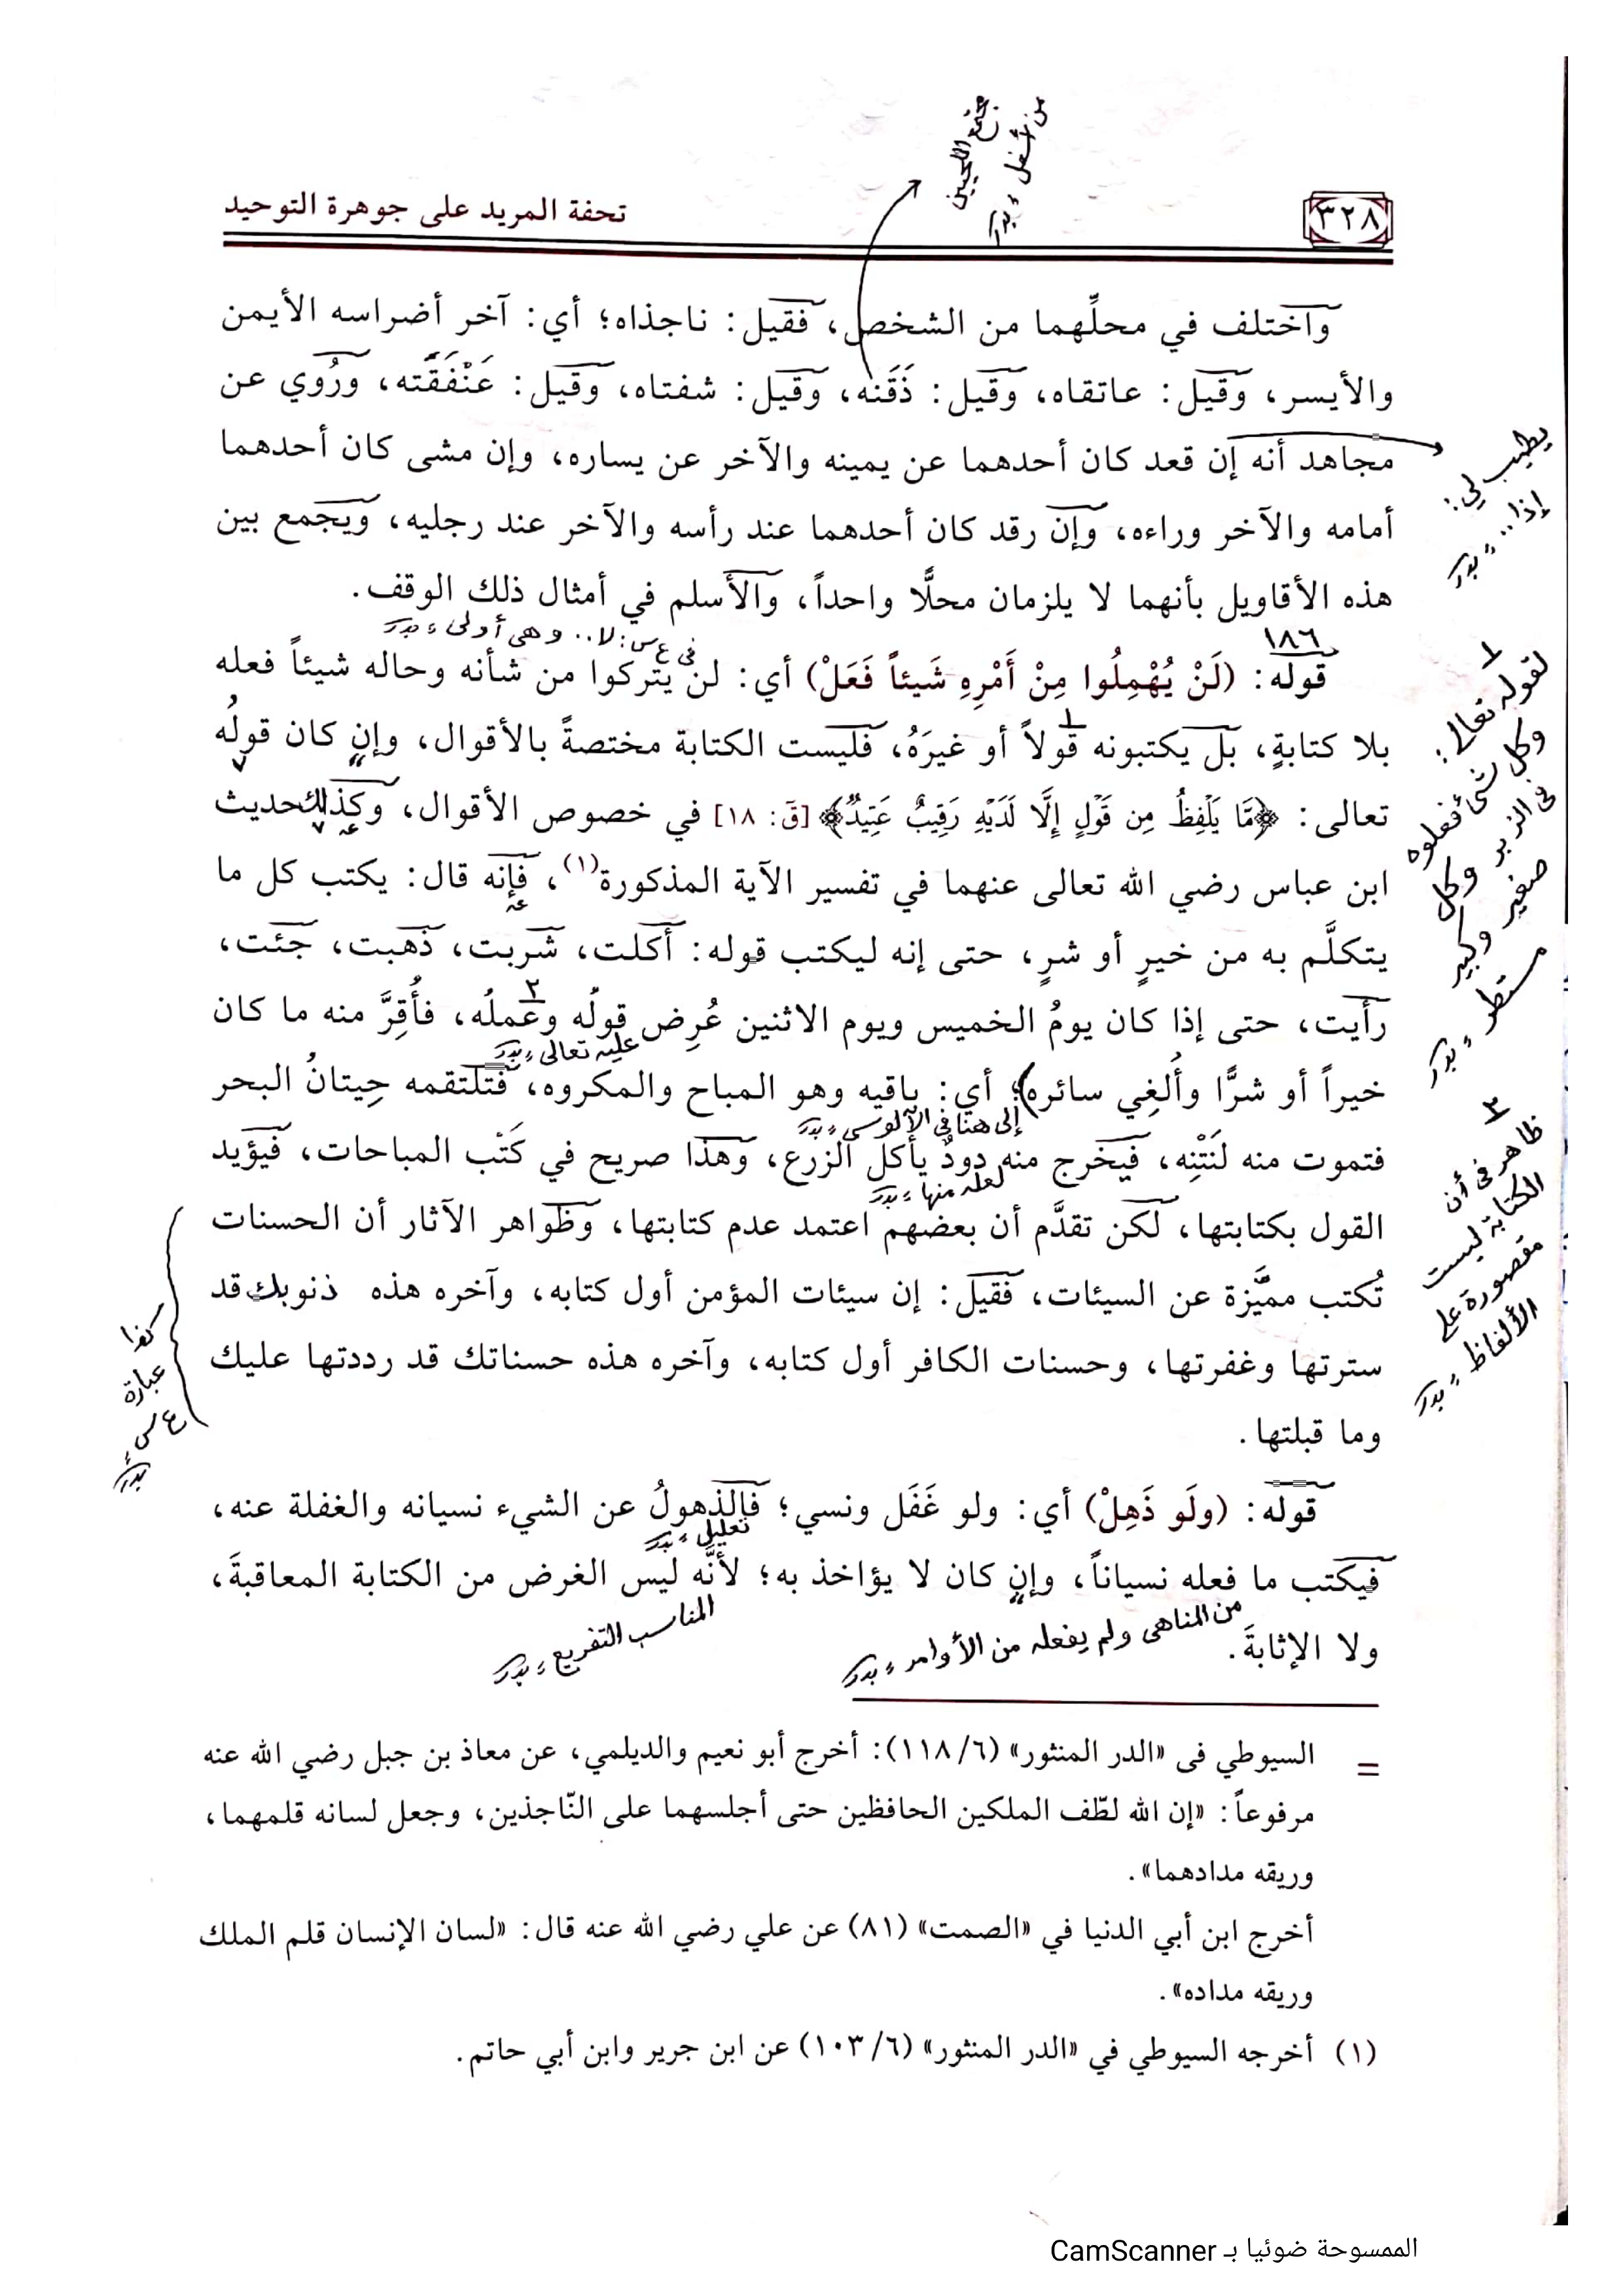 مجتمع اللحيين
من أسفل ؛ بدر
٣٢٨
تحفة المريد على جوهرة التوحيد
واختلف في محلِّهما من الشخص، فقيل: ناجذاه؛ أي: آخر أضراسه الأيمن
والأيسر، وقيل: عاتقاه، وقيل: ذَقَنه، وقيل: شفتاه، وقيل: عَنْفَقَته، ورُوي عن
مجاهد أنه إن قعد كان أحدهما عن يمينه والآخر عن يساره، وإن مشى كان أحدهما
أمامه والآخر وراءه، وإن رقد كان أحدهما عند رأسه والآخر عند رجليه، ويجمع بين
هذه الأقاويل بأنهما لا يلزمان محلًّا واحداً، والأسلم في أمثال ذلك الوقف.
يطيب لي:
إذا.. ؛ بدر
١٨٦
في ع س: لا.. وهي أولى ؛ بدر
قوله: (لَنْ يُهْمِلُوا مِنْ أَمْرِهِ شَيئاً فَعَلْ) أي: لن يتركوا من شأنه وحاله شيئاً فعله
بلا كتابةٍ، بل يكتبونه قولاً أو غيرَهُ، فليست الكتابة مختصةً بالأقوال، وإن كان قولُه
تعالى: ﴿مَّا يَلْفِظُ مِن قَوْلٍ إِلَّا لَدَيْهِ رَقِيبٌ عَتِيدٌ﴾ [قَ: ١٨] في خصوص الأقوال، وكذلك حديث
ابن عباس رضي الله تعالى عنهما في تفسير الآية المذكورة(١)، فإنه قال: يكتب كل ما
يتكلَّم به من خيرٍ أو شرٍ، حتى إنه ليكتب قوله: أكلت، شربت، ذهبت، جئت،
رأيت، حتى إذا كان يومُ الخميس ويوم الاثنين عُرِض قولُه وعملُه، فأُقِرَّ منه ما كان
عليه تعالى ؛ بدر
خيراً أو شرًّا وأُلغِي سائره؛ أي: باقيه وهو المباح والمكروه، فتلتقمه حِيتانُ البحر
إلى هنا في الآلوسي ؛ بدر
فتموت منه لنَتْنِه، فيَخرج منه دودٌ يأكل الزرع، وهذا صريح في كَتْب المباحات، فيؤيد
لعله منها ؛ بدر
القول بكتابتها، لكن تقدَّم أن بعضهم اعتمد عدم كتابتها، وظواهر الآثار أن الحسنات
تُكتب مميَّزة عن السيئات، فقيل: إن سيئات المؤمن أول كتابه، وآخره هذه ذنوبك قد
سترتها وغفرتها، وحسنات الكافر أول كتابه، وآخره هذه حسناتك قد رددتها عليك
وما قبلتها.
١
لقوله تعالى:
وكل شيء فعلوه
في الزبر وكل
صغير وكبير
مستطر ؛ بدر
٢
ظاهر في أن
الكتابة ليست
مقصورة على
الألفاظ ؛ بدر
كذا
عبارة
ع س ؛
بدر
قوله: (ولَو ذَهِلْ) أي: ولو غَفَل ونسي؛ فالذهولُ عن الشيء نسيانه والغفلة عنه،
تعليل ؛ بدر
فيكتب ما فعله نسياناً، وإن كان لا يؤاخذ به؛ لأنَّه ليس الغرض من الكتابة المعاقبةَ،
ولا الإثابةَ.
من المناهي ولم يفعله من الأوامر ؛ بدر
المناسب التفريع ؛ بدر
= السيوطي فى «الدر المنثور» (٦/ ١١٨): أخرج أبو نعيم والديلمي، عن معاذ بن جبل رضي الله عنه
مرفوعاً: «إن الله لطّف الملكين الحافظين حتى أجلسهما على النّاجذين، وجعل لسانه قلمهما،
وريقه مدادهما».
أخرج ابن أبي الدنيا في «الصمت» (٨١) عن علي رضي الله عنه قال: «لسان الإنسان قلم الملك
وريقه مداده».
(١) أخرجه السيوطي في «الدر المنثور» (٦/ ١٠٣) عن ابن جرير وابن أبي حاتم.
الممسوحة ضوئيا بـ CamScanner